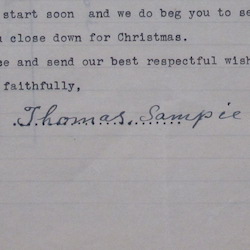 start soon and we do beg you to se
close down for Christmas.
and send our best respectful wish
faithfully,
Thomas Sampie